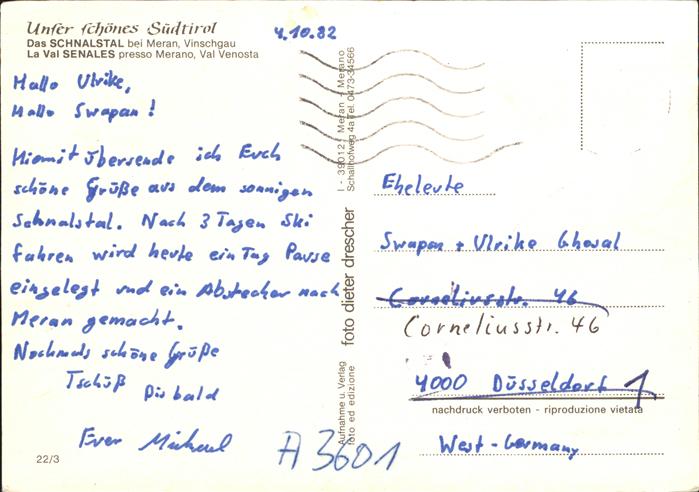 Unser schönes Südtirol
Das SCHNALSTAL bei Meran, Vinschgau
La Val SENALES presso Merano, Val Venosta
4.10.82
Hallo Ulrike,
Hallo Swapan!
Hiermit übersende ich Euch
schöne Grüße aus dem sonnigen
Schnalstal. Nach 3 Tagen Ski
fahren wird heute ein Tag Pause
eingelegt und ein Abstecher nach
Meran gemacht.
Nochmals schöne Grüße
Tschüß Bis bald
Euer Michael
22/3
A3601
I - 39012 Meran - Merano
Schallhofweg 4a Tel. 0473-34566
foto dieter drescher
Aufnahme u. Verlag
foto ed edizione
Eheleute
Swapan + Ulrike Ghosal
Corneliusstr. 46
Corneliusstr. 46
4000 Düsseldorf 1
nachdruck verboten - riproduzione vietata
West-Germany